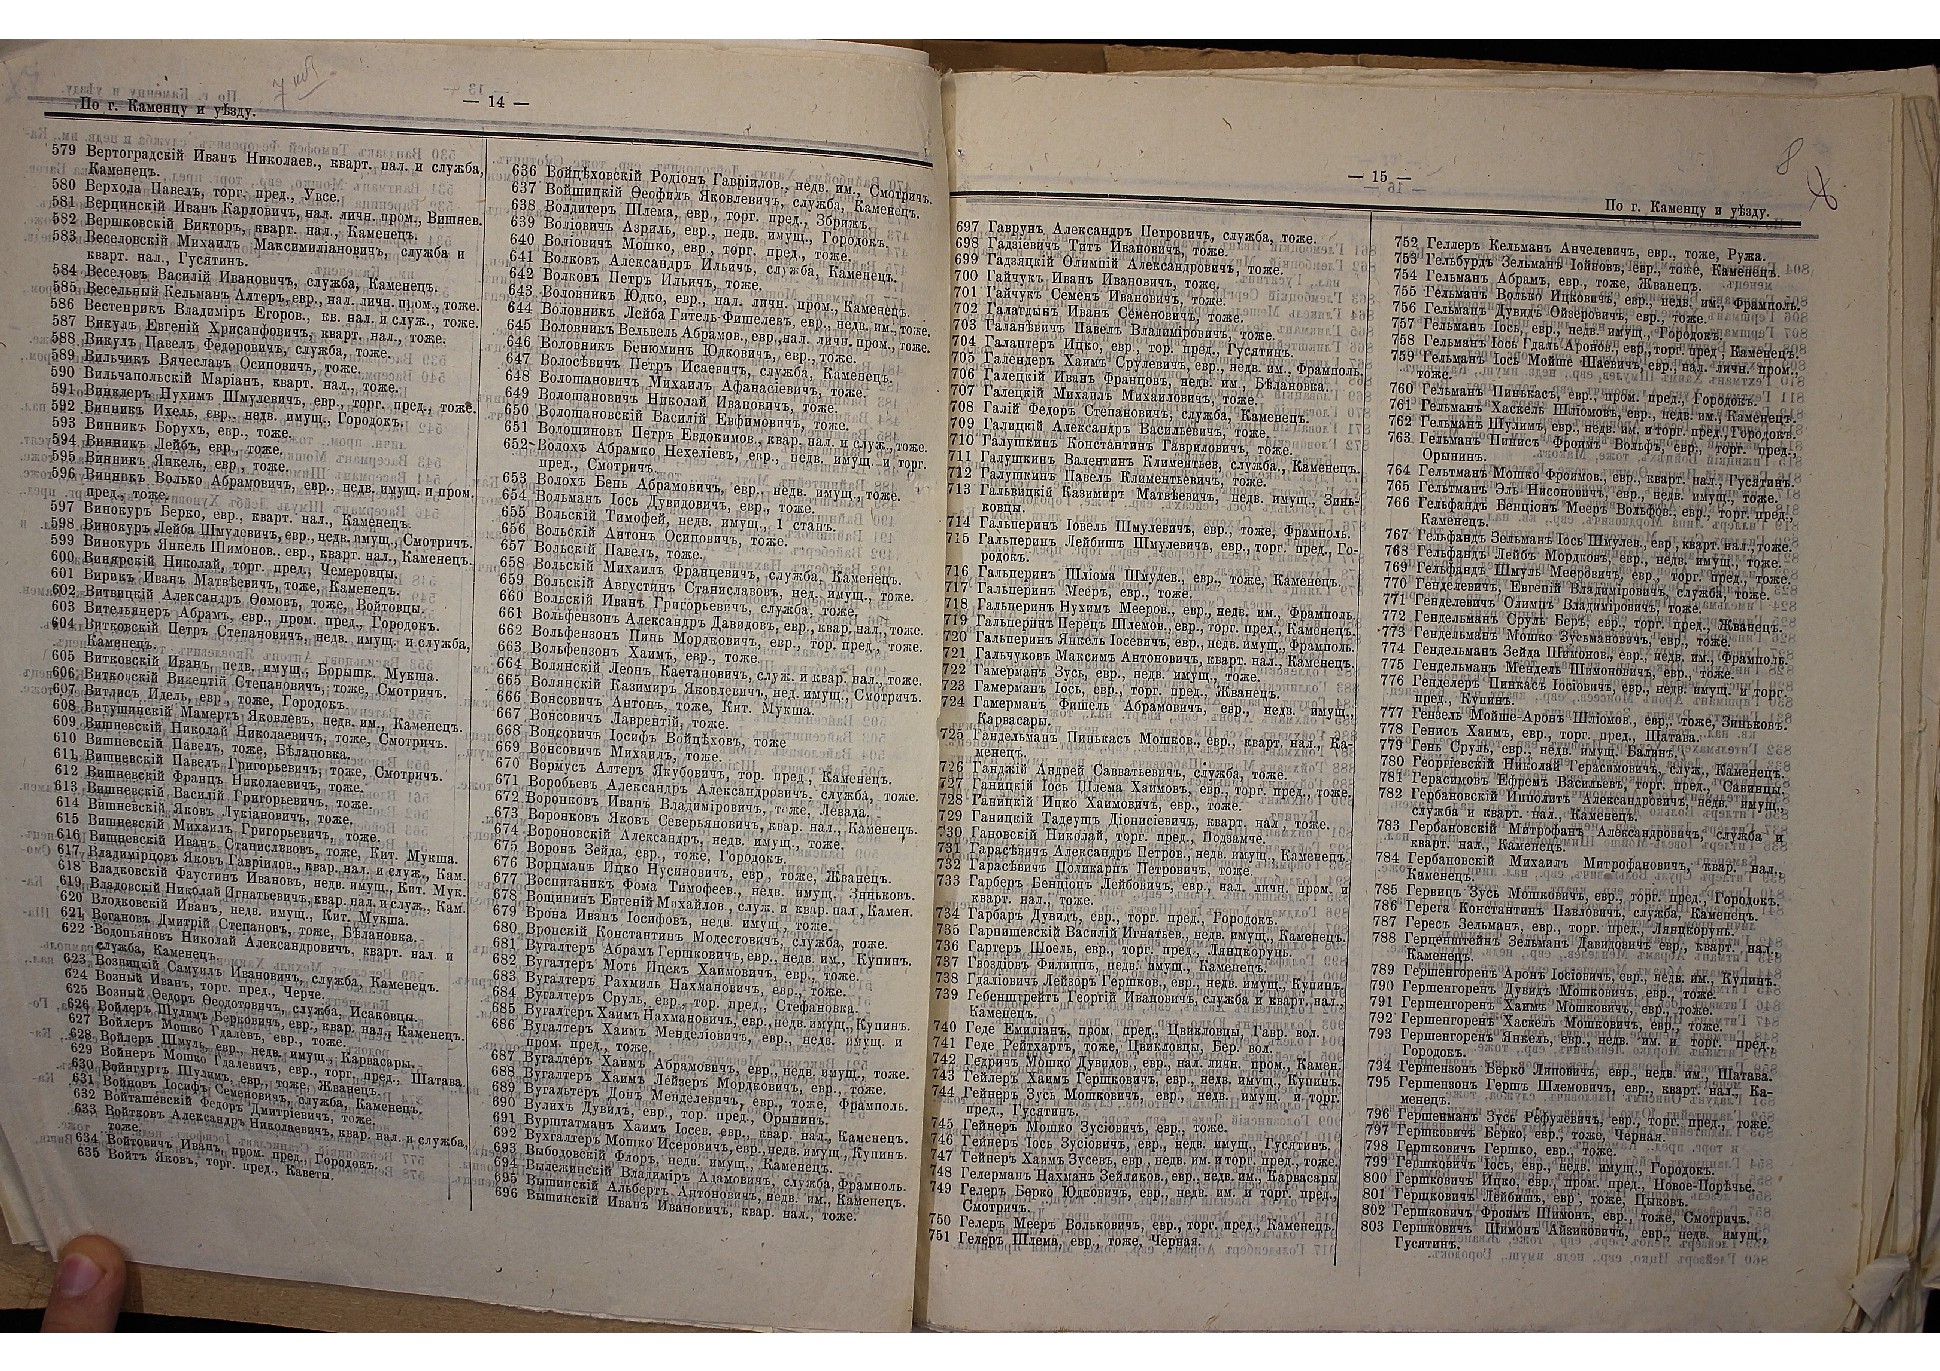 — 14 —
По г. Каменцу и уѣзду.
579 Вертоградскій Иванъ Николаев., кварт. нал. и служба,
Каменецъ.
580 Верхола Павелъ, торг. пред., Увсе.
581 Верцинскій Иванъ Карловичъ, нал. личн. пром., Вишнев.
582 Вершковскій Викторъ, кварт. нал., Каменецъ.
583 Веселовскій Михаилъ Максимиліановичъ, служба и
кварт. нал., Гусятинъ.
584 Веселовъ Василій Ивановичъ, служба, Каменецъ.
585 Весельный Кельманъ Алтеръ, евр., нал. личн. пром., тоже.
586 Вестенрикъ Владиміръ Егоров., кв. нал. и служ., тоже.
587 Викулъ Евгеній Хрисанфовичъ, кварт. нал., тоже.
588 Викулъ Павелъ Федоровичъ, служба, тоже.
589 Вильчикъ Вячеславъ Осиповичъ, тоже.
590 Вильчапольскій Маріанъ, кварт. нал., тоже.
591 Винклеръ Нухимъ Шмулевичъ, евр., торг. пред., тоже.
592 Винникъ Ихель, евр., недв. имущ., Городокъ.
593 Винникъ Борухъ, евр., тоже.
594 Винникъ Лейбъ, евр., тоже.
595 Винникъ Янкель, евр., тоже.
596 Винникъ Волько Абрамовичъ, евр., недв. имущ. и пром.
пред., тоже.
597 Винокуръ Берко, евр., кварт. нал., Каменецъ.
598 Винокуръ Лейба Шмулевичъ, евр., недв. имущ., Смотричъ.
599 Винокуръ Янкель Шимонов., евр., кварт. нал., Каменецъ.
600 Виндярскій Николай, торг. пред., Чемеровцы.
601 Вирикъ Иванъ Матвѣевичъ, тоже, Каменецъ.
602 Витвицкій Александръ Ѳомовъ, тоже, Войтовцы.
603 Вительянеръ Абрамъ, евр., пром. пред., Городокъ.
604 Витковскій Петръ Степановичъ, недв. имущ. и служба,
Каменецъ.
605 Витковскій Иванъ, недв. имущ., Борышк. Мукша.
606 Витковскій Викентій Степановичъ, тоже, Смотричъ.
607 Витлисъ Идель, евр., тоже, Городокъ.
608 Витушинскій Мамертъ Яковлев., недв. им., Каменецъ.
609 Вишневскій Николай Николаевичъ, тоже, Смотричъ.
610 Вишневскій Павелъ, тоже, Бѣлановка.
611 Вишневскій Павелъ Григорьевичъ, тоже, Смотричъ.
612 Вишневскій Францъ Николаевичъ, тоже.
613 Вишневскій Василій Григорьевичъ, тоже.
614 Вишневскій Яковъ Лукіановичъ, тоже.
615 Вишневскій Михаилъ Григорьевичъ, тоже.
616 Вишневскій Иванъ Станиславов., тоже, Кит. Мукша.
617 Владимірцовъ Яковъ Гавріилов., кварт. нал. и служ., Кам.
618 Владковскій Фаустинъ Ивановъ, недв. имущ., Кит. Мук.
619 Владовскій Николай Игнатьевичъ, кварт. нал. и служ., Кам.
620 Влодковскій Иванъ, недв. имущ., Кит. Мукша.
621 Вогановъ Дмитрій Степановъ, тоже, Бѣлановка.
622 Водопьяновъ Николай Александровичъ, кварт. нал. и
служба, Каменецъ.
623 Возницкій Самуилъ Ивановичъ, служба, Каменецъ.
624 Возный Иванъ, торг. пред., Черче.
625 Возный Ѳедоръ Ѳеодотовичъ, служба, Исаковцы.
626 Войлеръ Шулимъ Берковичъ, евр., квар. нал., Каменецъ.
627 Войлеръ Мошко Гдалев., евр., тоже.
628 Войлеръ Шмуль, евр., недв. имущ., Карвасары.
629 Войнеръ Мошко Гдалевичъ, евр., торг. пред., Шатава.
630 Войнгуртъ Шулимъ, евр., тоже, Жванецъ.
631 Войновъ Іосифъ Семеновичъ, служба, Каменецъ.
632 Войташевскій Федоръ Дмитріевичъ, тоже.
633 Войтковъ Александръ Николаевичъ, квар. нал. и служба,
тоже.
634 Войтовичъ Иванъ, пром. пред., Городокъ.
635 Войтъ Яковъ, торг. пред., Каветы.
636 Войцѣховскій Родіонъ Гавріилов., недв. им., Смотричъ.
637 Войшицкій Ѳеофилъ Яковлевичъ, служба, Каменецъ.
638 Волдитеръ Шлема, евр., торг. пред., Збрижъ.
639 Воліовичъ Азриль, евр., недв. имущ., Городокъ.
640 Воліовичъ Мошко, евр., торг. пред., тоже.
641 Волковъ Александръ Ильичъ, служба, Каменецъ.
642 Волковъ Петръ Ильичъ, тоже.
643 Воловникъ Юдко, евр., нал. личн. пром., Каменецъ.
644 Воловникъ, Лейба Гитель-Фишелев., евр., недв. им., тоже.
645 Воловникъ Вельвель Абрамов., евр., нал. личн. пром., тоже.
646 Воловникъ Бенюминъ Юдковичъ, евр., тоже.
647 Волосѣвичъ Петръ Исаевичъ, служба, Каменецъ.
648 Волошановичъ Михаилъ Афанасіевичъ, тоже.
649 Волошановичъ Николай Ивановичъ, тоже.
650 Волошановскій Василій Евфимовичъ, тоже.
651 Волощиновъ Петръ Евдокимов., квар. нал. и служ., тоже.
652 Волохъ Абрамко Нехеліев., евр., недв. имущ. и торг.
пред., Смотричъ.
653 Волохъ Бень Абрамовичъ, евр., недв. имущ., тоже.
654 Вольманъ Іось Дувидовичъ, евр., тоже.
655 Вольскій Тимофей, недв. имущ., 1 станъ.
656 Вольскій Антонъ Осиповичъ, тоже.
657 Вольскій Павелъ, тоже.
658 Вольскій Михаилъ Францевичъ, служба, Каменецъ.
659 Вольскій Августинъ Станиславов., нед. имущ., тоже.
660 Вольскій Иванъ Григорьевичъ, служба, тоже.
661 Вольфензонъ Александръ Давидов., евр., квар. нал., тоже.
662 Вольфензонъ Пинь Мордковичъ, евр., тор. пред., тоже.
663 Вольфензонъ Хаимъ, евр., тоже.
664 Волянскій Леонъ Каетановичъ, служ. и квар. нал., тоже.
665 Волянскій Казимиръ Яковлевичъ, нед. имущ., Смотричъ.
666 Вонсовичъ Антонъ, тоже, Кит. Мукша.
667 Вонсовичъ Лаврентій, тоже.
668 Вонсовичъ Іосифъ Войцѣхов., тоже
669 Вонсовичъ Михаилъ, тоже.
670 Вормусъ Алтеръ Якубовичъ, тор. пред., Каменецъ.
671 Воробьевъ Александръ Александровичъ, служба, тоже.
672 Воронковъ Иванъ Владиміровичъ, тоже, Левада.
673 Воронковъ Яковъ Северьяновичъ, квар. нал., Каменецъ.
674 Вороновскій Александръ, недв. имущ., тоже.
675 Воронъ Зейда, евр., тоже, Городокъ.
676 Вордманъ Ицко Нусиновичъ, евр., тоже, Жванецъ.
677 Воспитаникъ Фома Тимофеев., недв. имущ., Зиньковъ.
678 Вощининъ Евгеній Михайлов., служ. и квар. нал., Камен.
679 Врона Иванъ Іосифовъ, недв. имущ., тоже.
680 Вронскій Константинъ Модестовичъ, служба, тоже.
681 Вугалтеръ Абрамъ Гершковичъ, евр., недв. им., Купинъ.
682 Вугалтеръ Моть Ицекъ Хаимовичъ, евр., тоже.
683 Вугалтеръ Рахмиль Нахмановичъ, евр., тоже.
684 Вугалтеръ Сруль, евр., тор. пред., Стефановка.
685 Вугалтеръ Хаимъ Нахмановичъ, евр., недв. имущ., Купинъ.
686 Вугалтеръ Хаимъ Менделіовичъ, евр., недв. имущ. и
пром. пред., тоже.
687 Вугалтеръ Хаимъ Абрамовичъ, евр., недв. имущ., тоже.
688 Вугалтеръ Хаимъ Лейзеръ Мордковичъ, евр., тоже.
689 Вугальтеръ Донъ Менделевичъ, евр., тоже, Фрамполь.
690 Вулихъ Дувидъ, евр., тор. пред., Орынинъ.
691 Вурштатманъ Хаимъ Іосев., евр., квар. нал., Каменецъ.
692 Вухгалтеръ Мошко Исеровичъ, евр., недв. имущ., Купинъ.
693 Выбодовскій Флоръ, недв. имущ., Каменецъ.
694 Вылежинскій Владиміръ Адамовичъ, служба, Фрамполь.
695 Вышинскій Альбертъ Антоновичъ, недв. им., Каменецъ.
696 Вышинскій Иванъ Ивановичъ, квар. нал., тоже.
— 15 —
По г. Каменцу и уѣзду.
697 Гаврунъ Александръ Петровичъ, служба, тоже.
698 Гадзіевичъ Титъ Ивановичъ, тоже.
699 Гадзяцкій Олимпій Александровичъ, тоже.
700 Гайчукъ Иванъ Ивановичъ, тоже.
701 Гайчукъ Семенъ Ивановичъ, тоже.
702 Галагдыкъ Иванъ Семеновичъ, тоже.
703 Галаневичъ Павелъ Владиміровичъ, тоже.
704 Галантеръ Ицко, евр., тор. пред., Гусятинъ.
705 Галендеръ Хаимъ Срулевичъ, евр., недв. им., Фрамполь.
706 Галецкій Иванъ Францовъ, недв. им., Бѣлановка.
707 Галецкій Михаилъ Михайловичъ, тоже.
708 Галій Федоръ Степановичъ, служба, Каменецъ.
709 Галицкій Александръ Васильевичъ, тоже.
710 Галушкинъ Константинъ Гавриловичъ, тоже.
711 Галушкинъ Валентинъ Климентьев., служба, Каменецъ.
712 Галушкинъ Павелъ Климентьевичъ, тоже.
713 Гальвицкій Казимиръ Матвѣевичъ, недв. имущ., Зинь-
ковцы.
714 Гальперинъ Іовель Шмулевичъ, евр., тоже, Фрамполь.
715 Гальперинъ Лейбишъ Шмулевичъ, евр., торг. пред., Го-
родокъ.
716 Гальперинъ Шліома Шмулев., евр., тоже, Каменецъ.
717 Гальперинъ Меерь, евр., тоже.
718 Гальперинъ Нухимъ Мееров., евр., недв. им., Фрамполь.
719 Гальперинъ Перецъ Шлемов., евр., торг. пред., Каменецъ.
720 Гальперинъ Янкель Іосевичъ, евр., недв. имущ., Фрамполь.
721 Гальчуковъ Максимъ Антоновичъ, кварт. нал., Каменецъ.
722 Гамерманъ Зусь, евр., недв. имущ., тоже.
723 Гамерманъ Іось, евр., торг. пред., Жванецъ.
724 Гамерманъ Фишель Абрамовичъ, евр., недв. имущ.,
Карвасары.
725 Гандельманъ Пинькасъ Мошков., евр., кварт. нал., Ка-
менецъ.
726 Ганджій Андрей Савватьевичъ, служба, тоже.
727 Ганицкій Іось Шлема Хаимов., евр., торг. пред., тоже.
728 Ганицкій Ицко Хаимовичъ, евр., тоже.
729 Ганицкій Тадеушъ Діонисіевичъ, кварт. нал., тоже.
730 Гановскій Николай, торг. пред., Подзамче.
731 Гарасѣвичъ Александръ Петров., недв. имущ., Каменецъ.
732 Гарасѣвичъ Поликарпъ Петровичъ, тоже
733 Гарберъ Бенціонъ Лейбовичъ, евр., нал. личн. пром. и
кварт. нал., тоже.
734 Гарбаръ Дувилъ, евр., торг. пред., Городокъ.
735 Гарнишевскій Василій Игнатьев., недв. имущ., Каменецъ.
736 Гартеръ Шоель, евр., торг. пред., Лянцкорунь.
737 Гвоздіовъ Филиппъ, недв. имущ., Каменецъ.
738 Гдаліовичъ Лейзоръ Гершков., евр., недв. имущ., Купинъ.
739 Гебенштрейтъ Георгій Ивановичъ, служба и кварт. нал.,
Каменецъ.
740 Геде Емиліанъ, пром. пред., Цвикловцы, Гавр. вол.
741 Геде Рейтхартъ, тоже, Цвикловцы, Бер. вол.
742 Гедричъ Мошко Дувидов., евр., нал. личн. пром., Камен.
743 Гейлеръ Хаимъ Гершковичъ, евр., недв. имущ., Купинъ.
744 Гейнеръ Зусь Мошковичъ, евр., недв. имущ. и торг.
пред., Гусятинъ.
745 Гейнеръ Мошко Зусіовичъ, евр., тоже.
746 Гейнеръ Іось Зусіовичъ, евр., недв. имущ., Гусятинъ.
747 Гейнеръ Хаимъ Зусев., евр., недв. им. и торг. пред., тоже.
748 Гелерманъ Нахманъ Зейликов., евр., недв. им., Карвасары
749 Гелеръ Берко Юдковичъ, евр., недв. им. и торг. пред.,
Смотричъ.
750 Гелеръ Мееръ Волькович, евр., торг. пред., Каменецъ.
751 Гелеръ Шлема, евр., тоже, Черная.
752 Геллеръ Кельманъ Анчелевичъ, евр., тоже, Ружа.
753 Гельбурдъ Зельманъ Іойнов., евр., тоже, Каменецъ.
754 Гельманъ Абрамъ, евр., тоже, Жванецъ.
755 Гельманъ Волько Ицковичъ, евр., недв. им., Фрамполь.
756 Гельманъ Дувидъ Ойзеровичъ, евр., тоже.
757 Гельманъ Іось, евр., недв. имущ., Городокъ.
758 Гельманъ Іось Гдаль Аронов., евр., торг. пред., Каменецъ.
759 Гельманъ Іось Мойше Шаевичъ, евр., нал. личн. пром.,
тоже.
760 Гельманъ Пинькасъ, евр., пром. пред., Городокъ.
761 Гельманъ Хаскель Шліомов., евр., недв. им., Каменецъ.
762 Гельманъ Шулимъ, евр., недв. им. и торг. пред., Городокъ.
763 Гельманъ Пинисъ Фроимъ Вольфъ, евр., торг. пред.
Орынинъ.
764 Гельтманъ Мошко Фроимов., евр., кварт. нал., Гусятинъ.
765 Гельтманъ Эль Нисоновичъ, евр., недв. имущ., тоже.
766 Гельфандъ Бенціонъ Мееръ Вольфов., евр., торг. пред.,
Каменецъ.
767 Гельфандъ Зельманъ Іось Шмулев., евр., кварт. нал., тоже.
768 Гельфандъ Лейбъ Мордков., евр., недв. имущ., тоже.
769 Гельфандъ Шмуль Мееровичъ, евр., торг. пред., тоже.
770 Генделевичъ, Евгеній Владиміровичъ, служба, тоже.
771 Генделевичъ Олимпъ Владиміровичъ, тоже.
772 Гендельманъ Сруль Беръ, евр., торг. пред., Жванецъ.
773 Гендельманъ Мошко Зусьмановичъ, евр., тоже.
774 Гендельманъ Зейда Шимонов., евр., недв. им., Фрамполь.
775 Гендельманъ Мендель Шимоновичъ, евр., тоже.
776 Генделеръ Пинкасъ Іосіовичъ, евр., недв. имущ. и торг.
пред., Купинъ.
777 Гензель Мойше-Аронъ Шліомов., евр., тоже, Зиньковъ.
778 Генисъ Хаимъ, евр., торг. пред., Шатава.
779 Гень Сруль, евр., недв. имущ., Балинъ.
780 Георгіевскій Николай Герасимовичъ, служ., Каменецъ.
781 Герасимовъ Ефремъ Васильевъ, торг. пред., Савинцы.
782 Гербановскій Ипполитъ Александровичъ, недв. имущ.,
служба и кварт. нал., Каменецъ.
783 Гербановскій Митрофанъ Александровичъ, служба и
кварт. нал., Каменецъ.
784 Гербановскій Михаилъ Митрофановичъ, квар. нал.,
Каменецъ.
785 Гервицъ Зусь Мошковичъ, евр., торг. пред., Городокъ.
786 Герега Константинъ Павловичъ, служба, Каменецъ.
787 Гересъ Зельманъ, евр., торг. пред., Лянцкорунь.
788 Герценштейнъ Зельманъ Давидовичъ евр., кварт. нал.,
Каменецъ.
789 Гершенгоренъ Аронъ Іосіовичъ, евр., недв. им., Купинъ.
790 Гершенгоренъ Дувидъ Мошковичъ, евр., тоже.
791 Гершенгоренъ Хаимъ Мошковичъ, евр., тоже.
792 Гершенгоренъ Хаскель Мошковичъ, евр., тоже.
793 Гершенгоренъ Янкель, евр., недв. им. и торг. пред.,
Городокъ.
794 Гершензонъ Берко Липовичъ, евр., недв. им., Шатава.
795 Гершензонъ Гершъ Шлемовичъ, евр., кварт. нал., Ка-
менецъ.
796 Гершенманъ Зусь Рефулевичъ, евр., торг. пред., тоже.
797 Гершковичъ Берко, евр., тоже, Черная.
798 Гершковичъ Гершко, евр., тоже.
799 Гершковичъ Іось, евр., недв. имущ., Городокъ.
800 Гершковичъ Ицко, евр., пром. пред., Новое-Порѣчье.
801 Гершковичъ Лейбишъ, евр., тоже, Цыковъ.
802 Гершковичъ Фроимъ Шимон., евр., тоже, Смотричъ.
803 Гершковичъ Шимонъ Айзиковичъ, евр., недв. имущ.,
Гусятинъ.